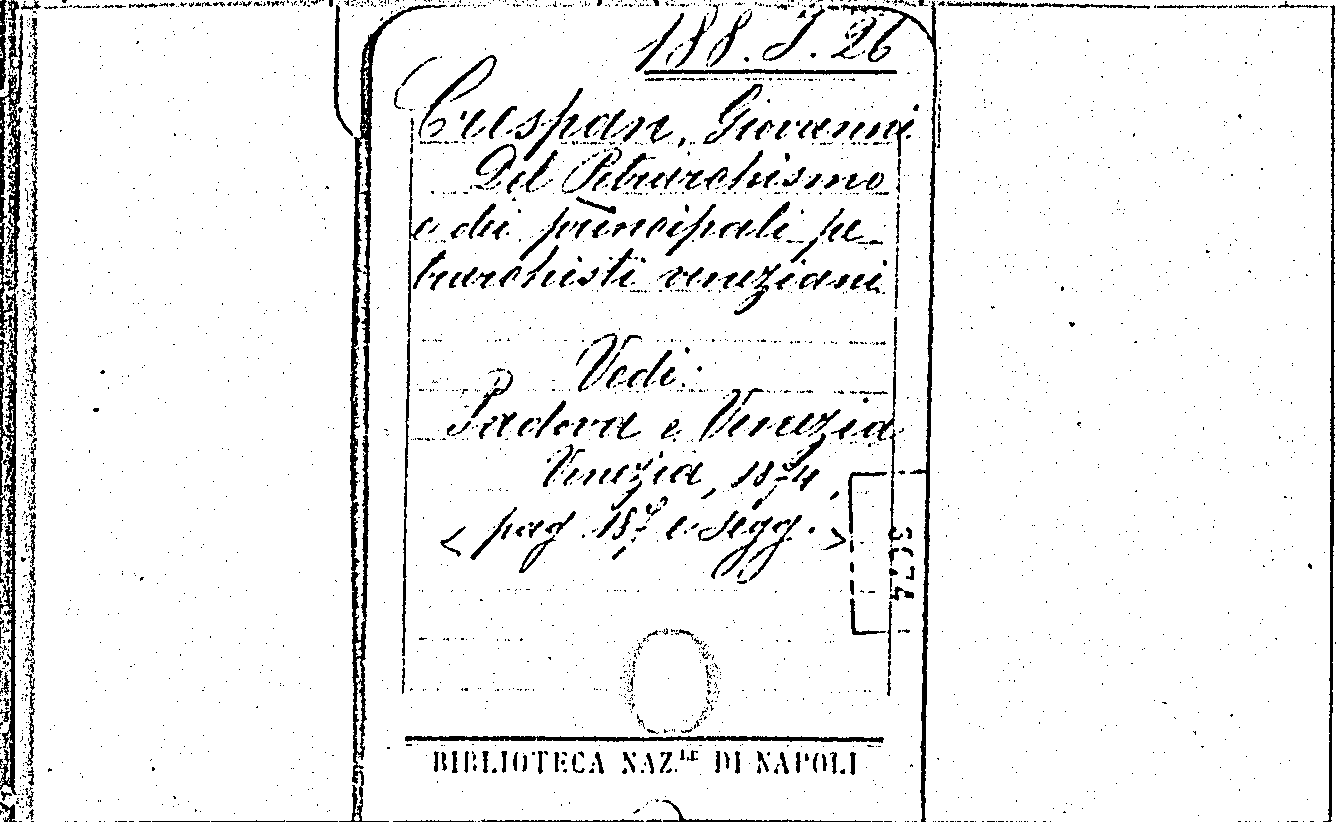 188. J. 26
Crespan, Giovanni
Del Petrarchismo
e dei principali pe
trarchisti veneziani
Vedi:
Padova e Venezia
Venezia, 1874,
< pag 187 e segg. >
BIBLIOTECA NAZ.LE DI NAPOLI